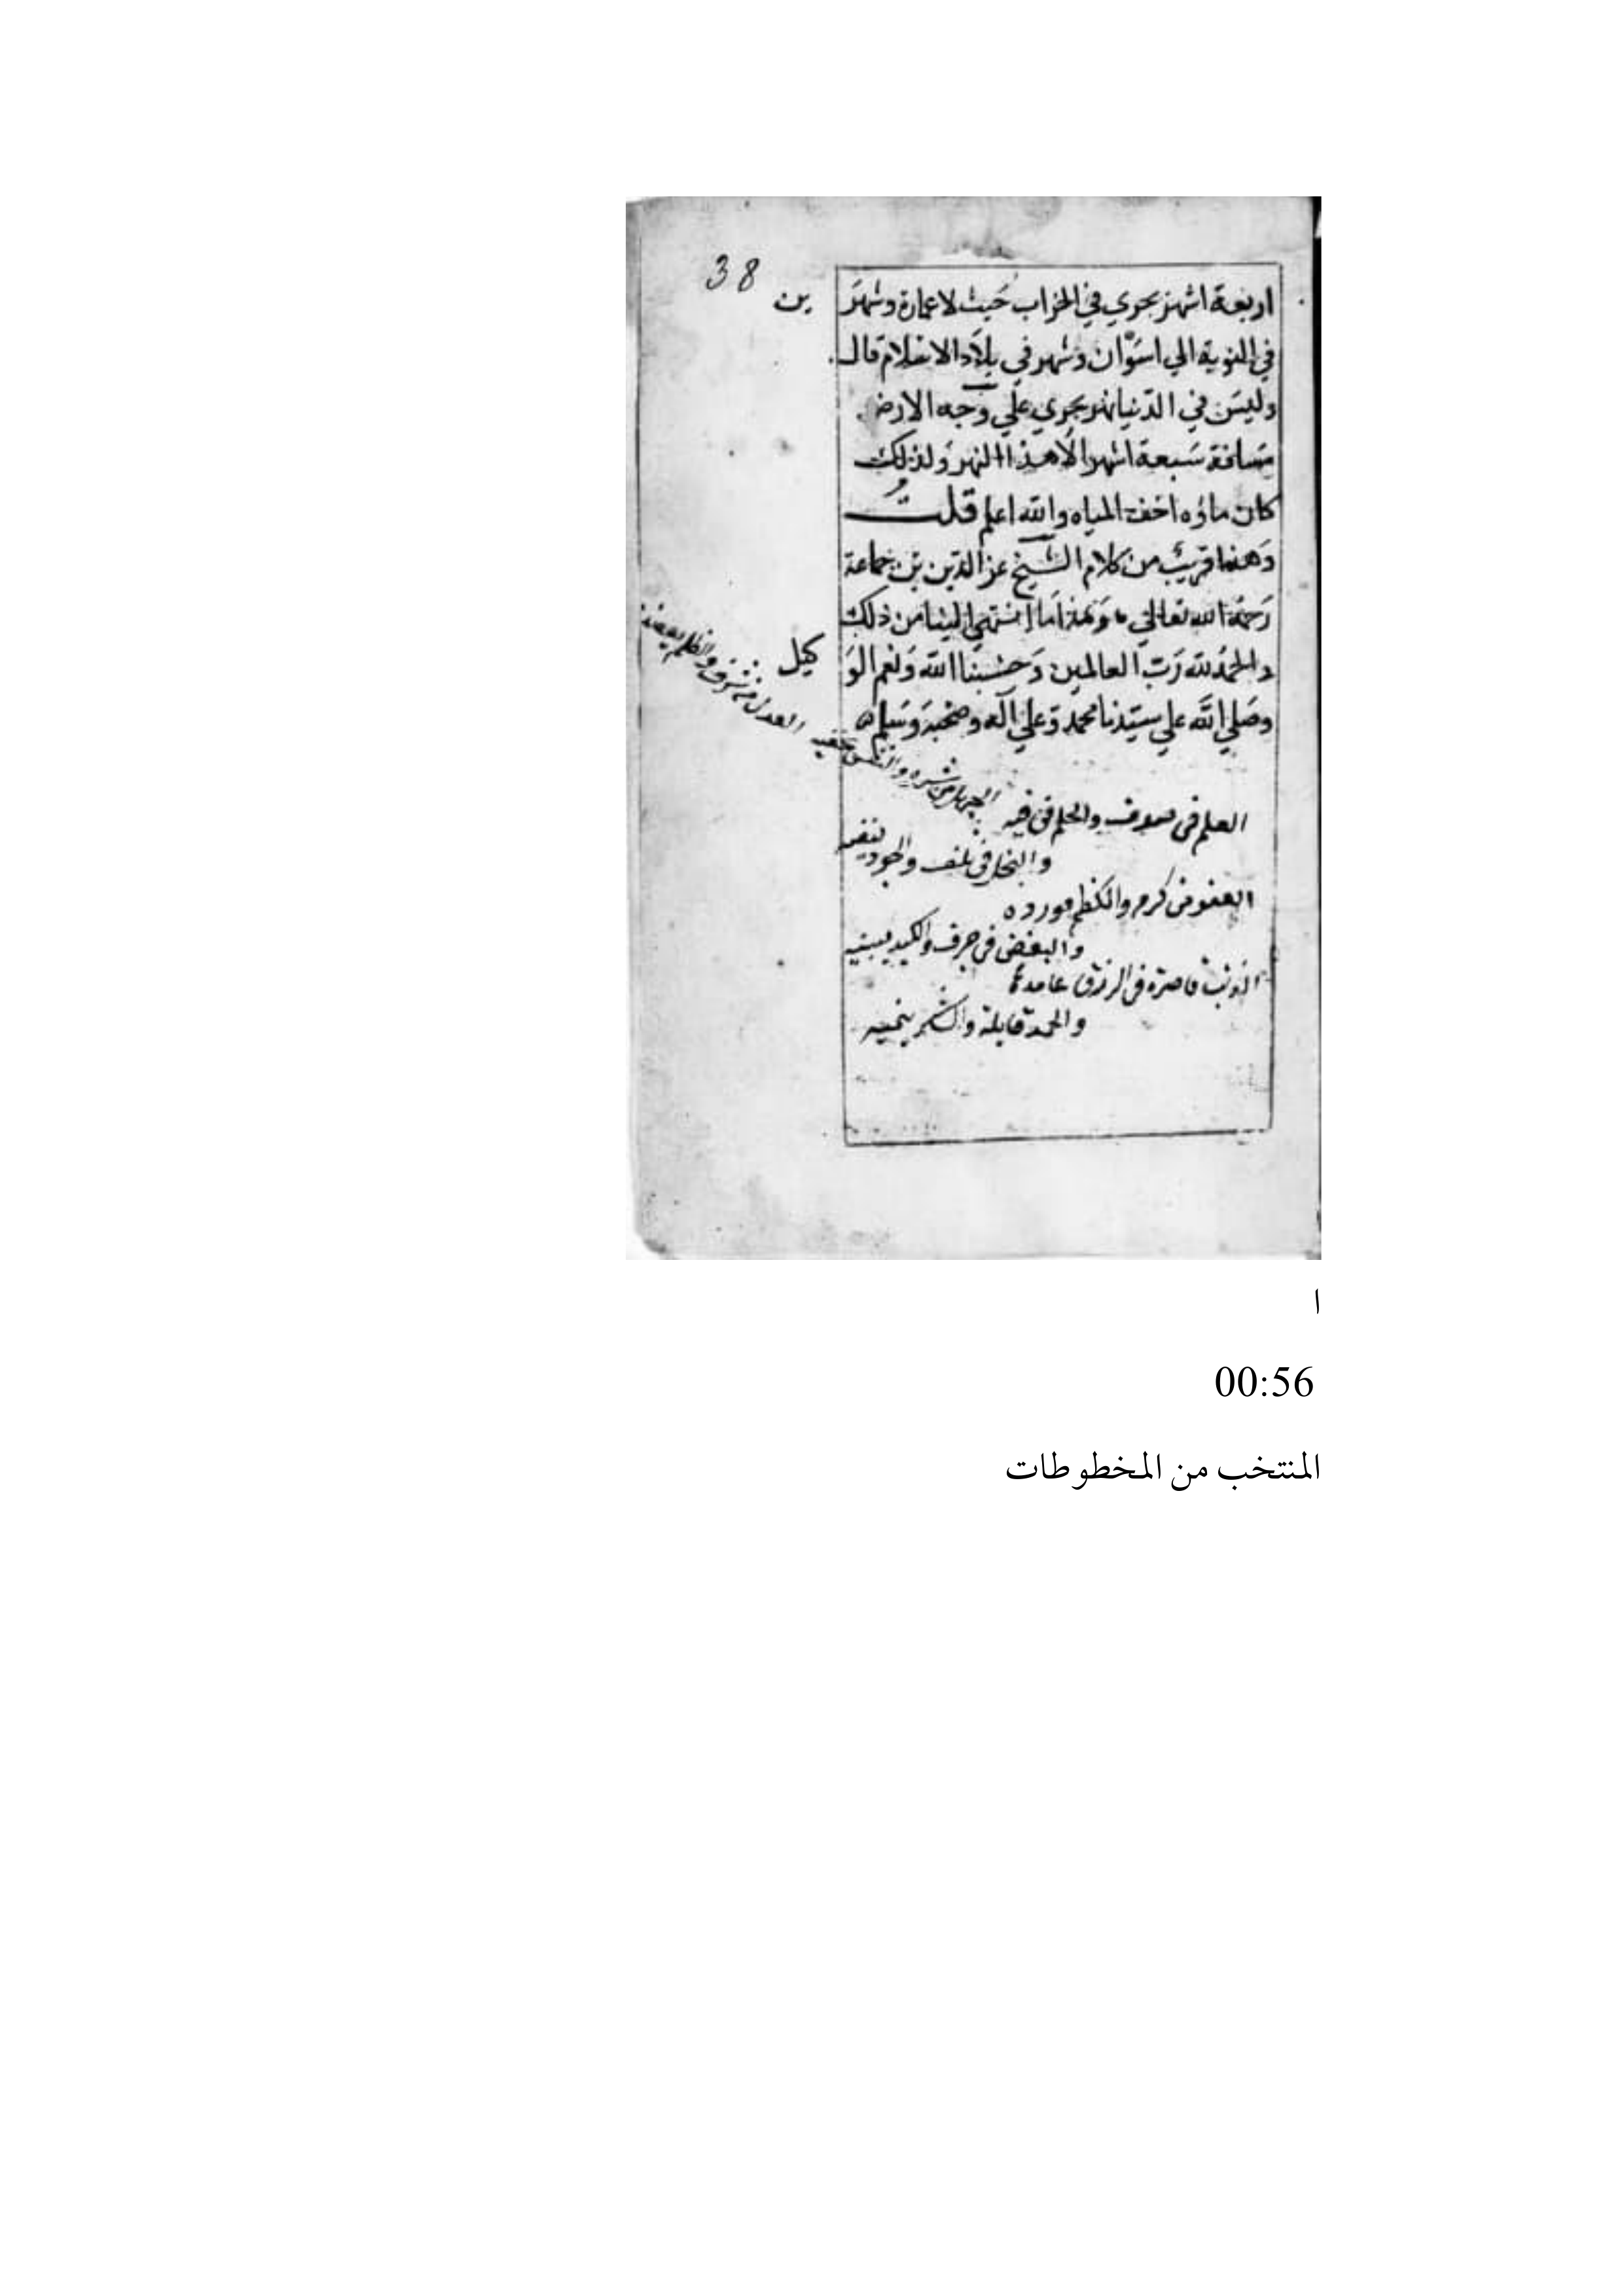 38
اربعة اشهر يجري في الخراب حيث لا عمارة وشهرين
في النوبة الي اسوان وشهر في بلاد الاسلام قال
وليس في الدنيا نهر يجري علي وجه الارض
مسافة سبعة اشهر الا هذا النهر ولذلك
كان ماؤه اخف المياه والله اعلم قلت
وهذا قريب من كلام الشيخ عز الدين بن جماعة
رحمه الله تعالي وهذا ما انتهي الينا من ذلك
والحمد لله رب العالمين وحسبنا الله ونعم الوكيل
وصلي الله علي سيدنا محمد وعلي آله وصحبه وسلم
العلم في والحلم في فيه
والبخل في تلف والجود
العفو في كرم والكظم مورده
والبغض في جرف والكيد
في الرزق عامدة
والحمد قابلة والشكر ينميه
الجهل من شره والنفس
العدل من شرف والظلم
ا
00:56
المنتخب من المخطوطات